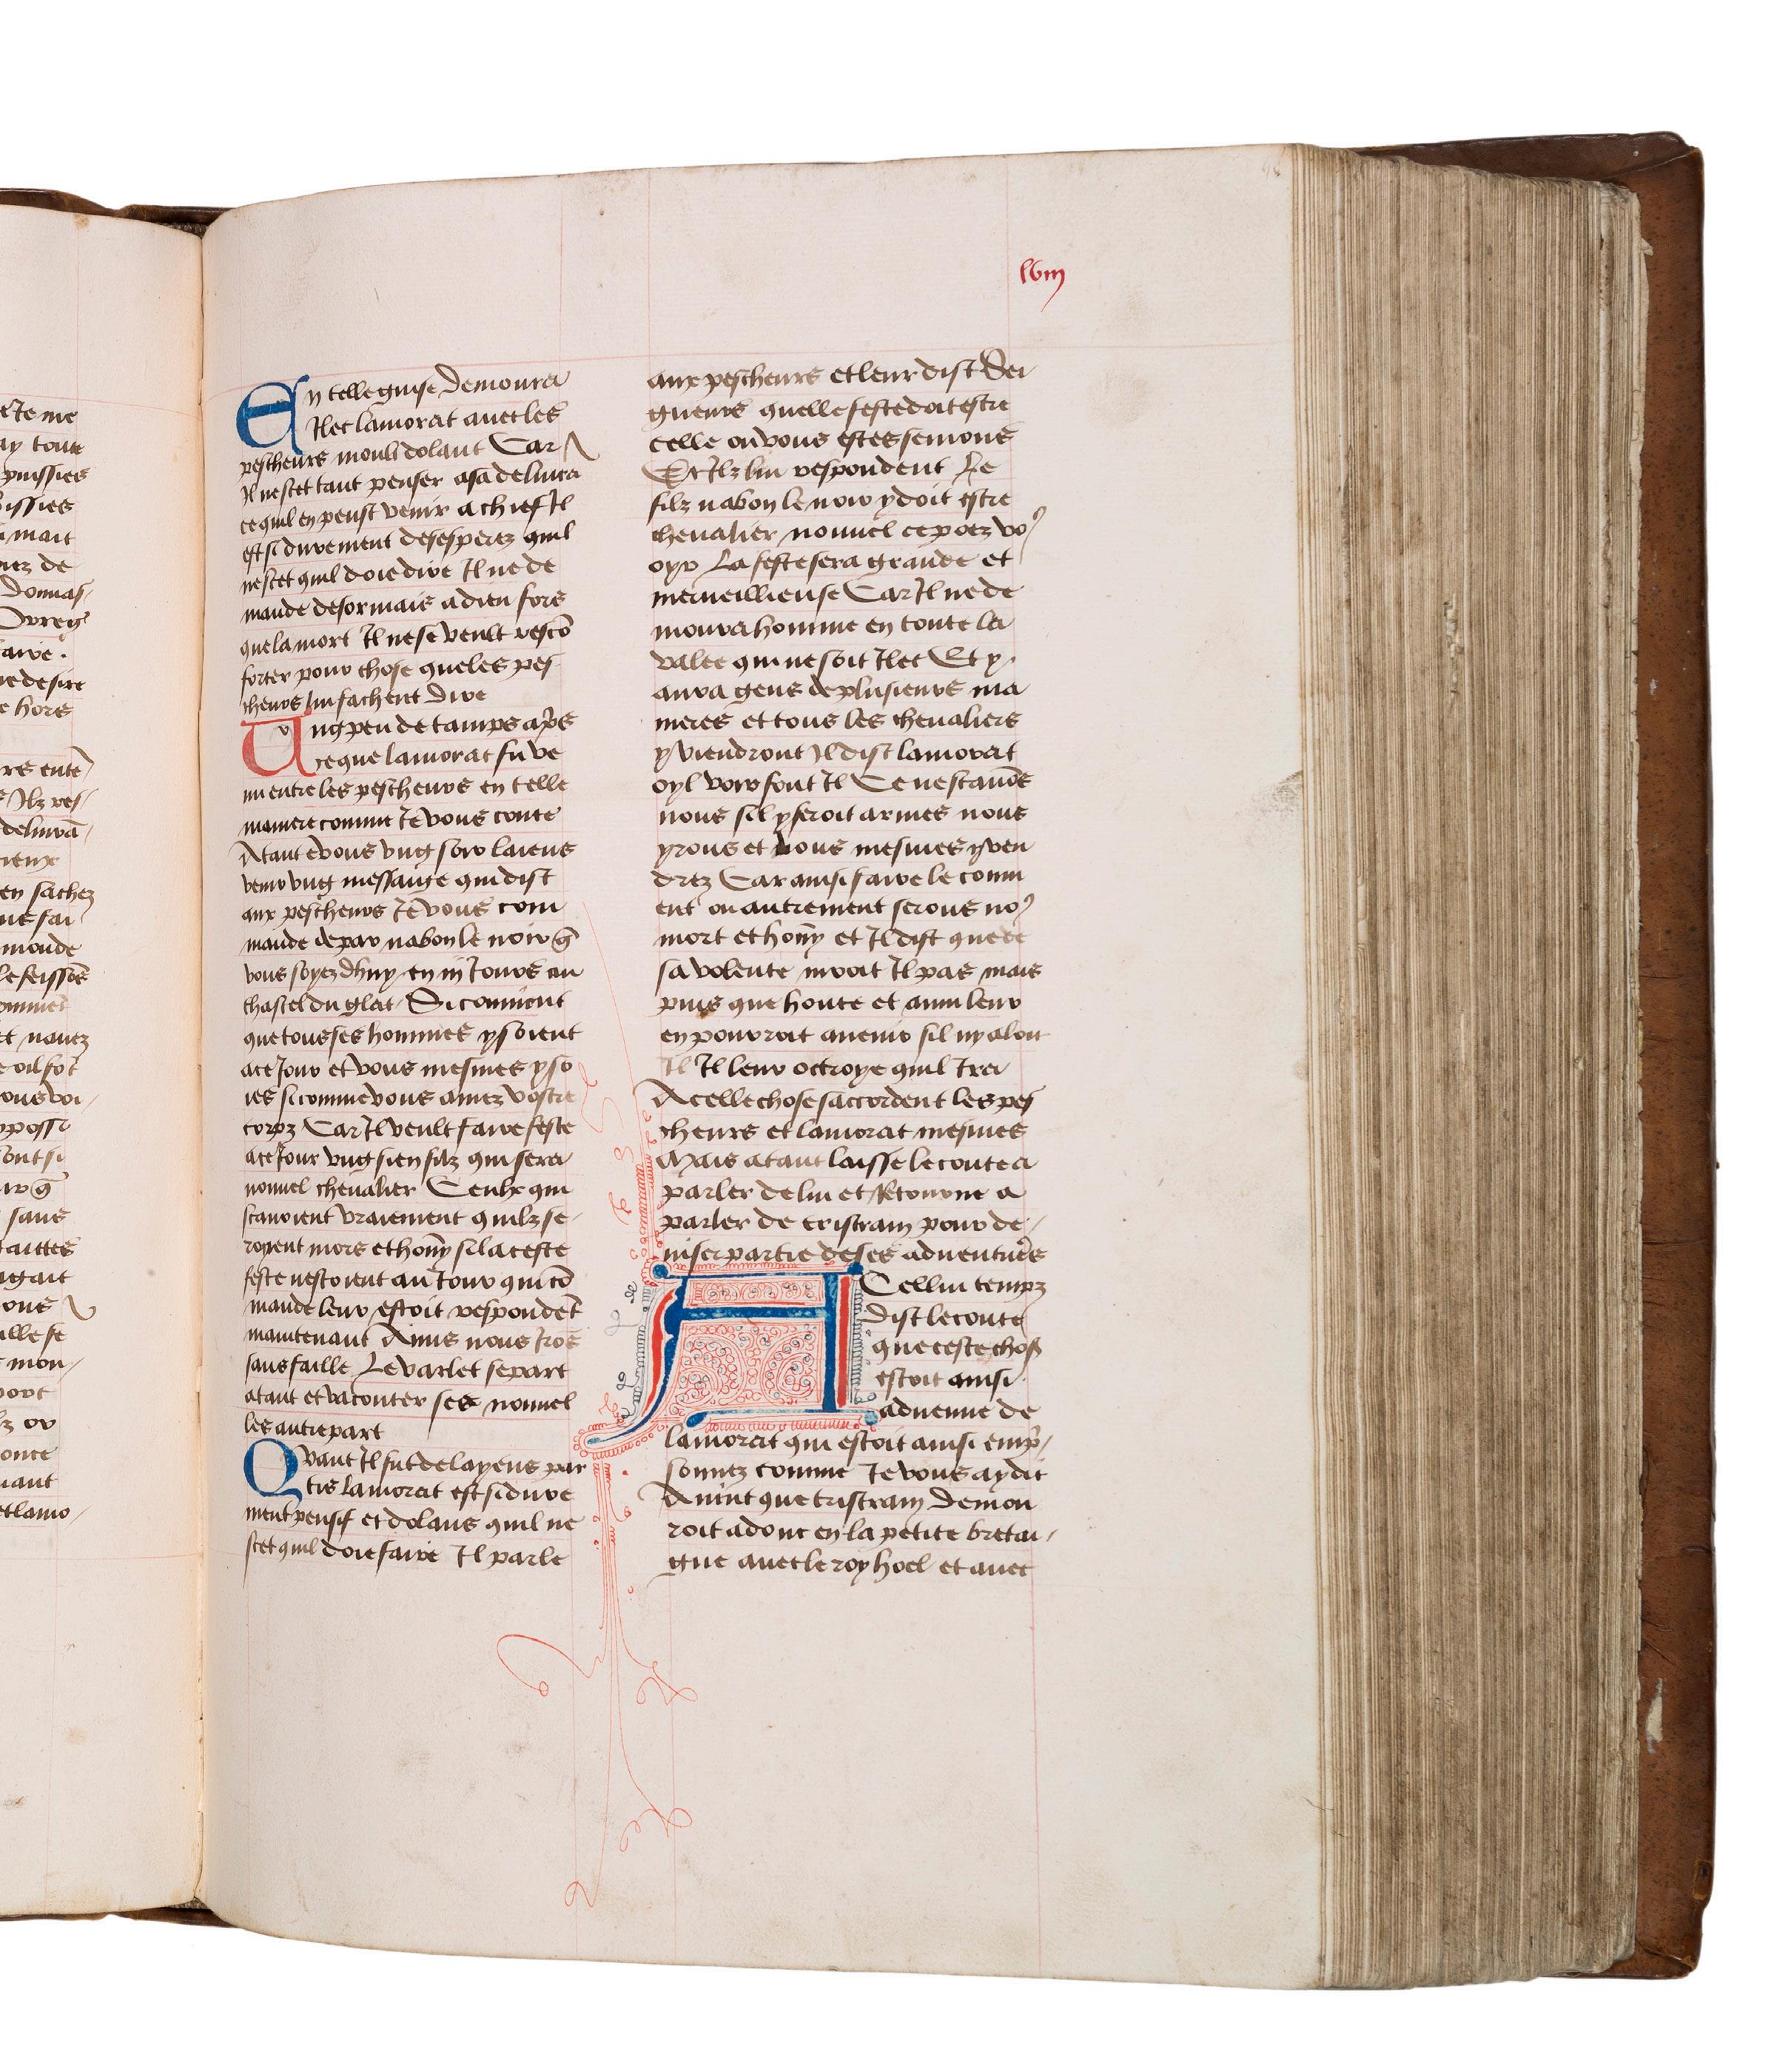 reJe me
ay toute
puissies
issies
mait
iez de
donnas
Ovreg
aire
ie desire
e hors
rs ente
Jlz res
delivra
rieux
en sachez
us fai
monde
le feissoes
ommet
et navez
e oil fot
ous voi
posse
ont si
ir q̄
sans
aittes
agait
ons
ille se
mon
vort
lz ou
once
nant
et lamo
lvııȷ
En telle guise demoura
Jlec lamorat avec les
pescheurs moult dolant Car
Jl nescet tant penser a sa delivra
ce quil en peust venir a chief Jl
est si durement desesperez quil
ne scet quil doie dire Jl ne de
mande desormais a dieu fors
que la mort Jl ne se veult recō
forter pour chose que les pes
cheurs lui sachent dire
Ung peu de tamps ap̄s
ce que lamorat fu ve
nu entre les pescheurs en telle
maniere comme Je vous conte
Atant evous ung soir laiens
venir ung messaige qui dist
aux pescheurs Je vous com
mande de par nabon le noir q̄
vous soyez dhuy en iij Jours au
chastel du glat Si convient
que tous ses hommes y soient
a ce Jour et vous mesmes y so
ies si comme vous amez vostre
corpz Car Jl veult faire feste
a ce Jour ung sien filz qui sera
nouvel chevalier Ceulx qui
scavoient vraiement quilz se
royent mors et hony̅ si la ceste
feste nestoient au Jour qui cō
mande leur estoit respondēt
maintenant Amis nous Jros
sans faille Le varlet se part
atant et va conter ses nouvel
les autre part
Quant Jl fut de layens par
tis lamorat est si dure
ment pensif et dolans quil ne
scet quil doie faire Jl parle
aux pescheurs et leur dist Sei
gneurs quelle feste doit estre
celle ou vous estes semons
Et Jlz lui respondent Le
filz nabon le noir y doit estre
chevalier nouvel ce poez voꝰ
oyr La feste sera grande et
merveillieuse Car Jl ne de
moura homme en toute la
valee qui ne soit Jlec Et y
aura gens de plusieurs ma
nieres et tous les chevaliers
y viendront Jl dist lamorat
oyl voir font Jl Ce ne scavōs
nous sil y feroit armes nous
yrons et vous mesmes y ven
drez Car ainsi faire le conui
ent ou autrement serons noꝰ
mort et hony̅ et Jl dist que de
sa volente niroit Jl pas mais
puis que honte et anui leur
en pourroit avenir sil ny aloit
Jl Jl leur octroye quil Jra
A celle chose saccordent les pes
cheurs et lamorat mesmes
Mais atant laisse le conte a
parler de lui et Retourne a
parler de tristram pour de
viser partie de ses adventures
A Cellui tempz
dist le conte
que ceste chose
estoit ainsi
advenue de
lamorat qui estoit ainsi emp̄
sonnez comme Je vous ay dit
Avint que tristram demou
roit adonc en la petite bretai
gne avec le roy hoel et avec